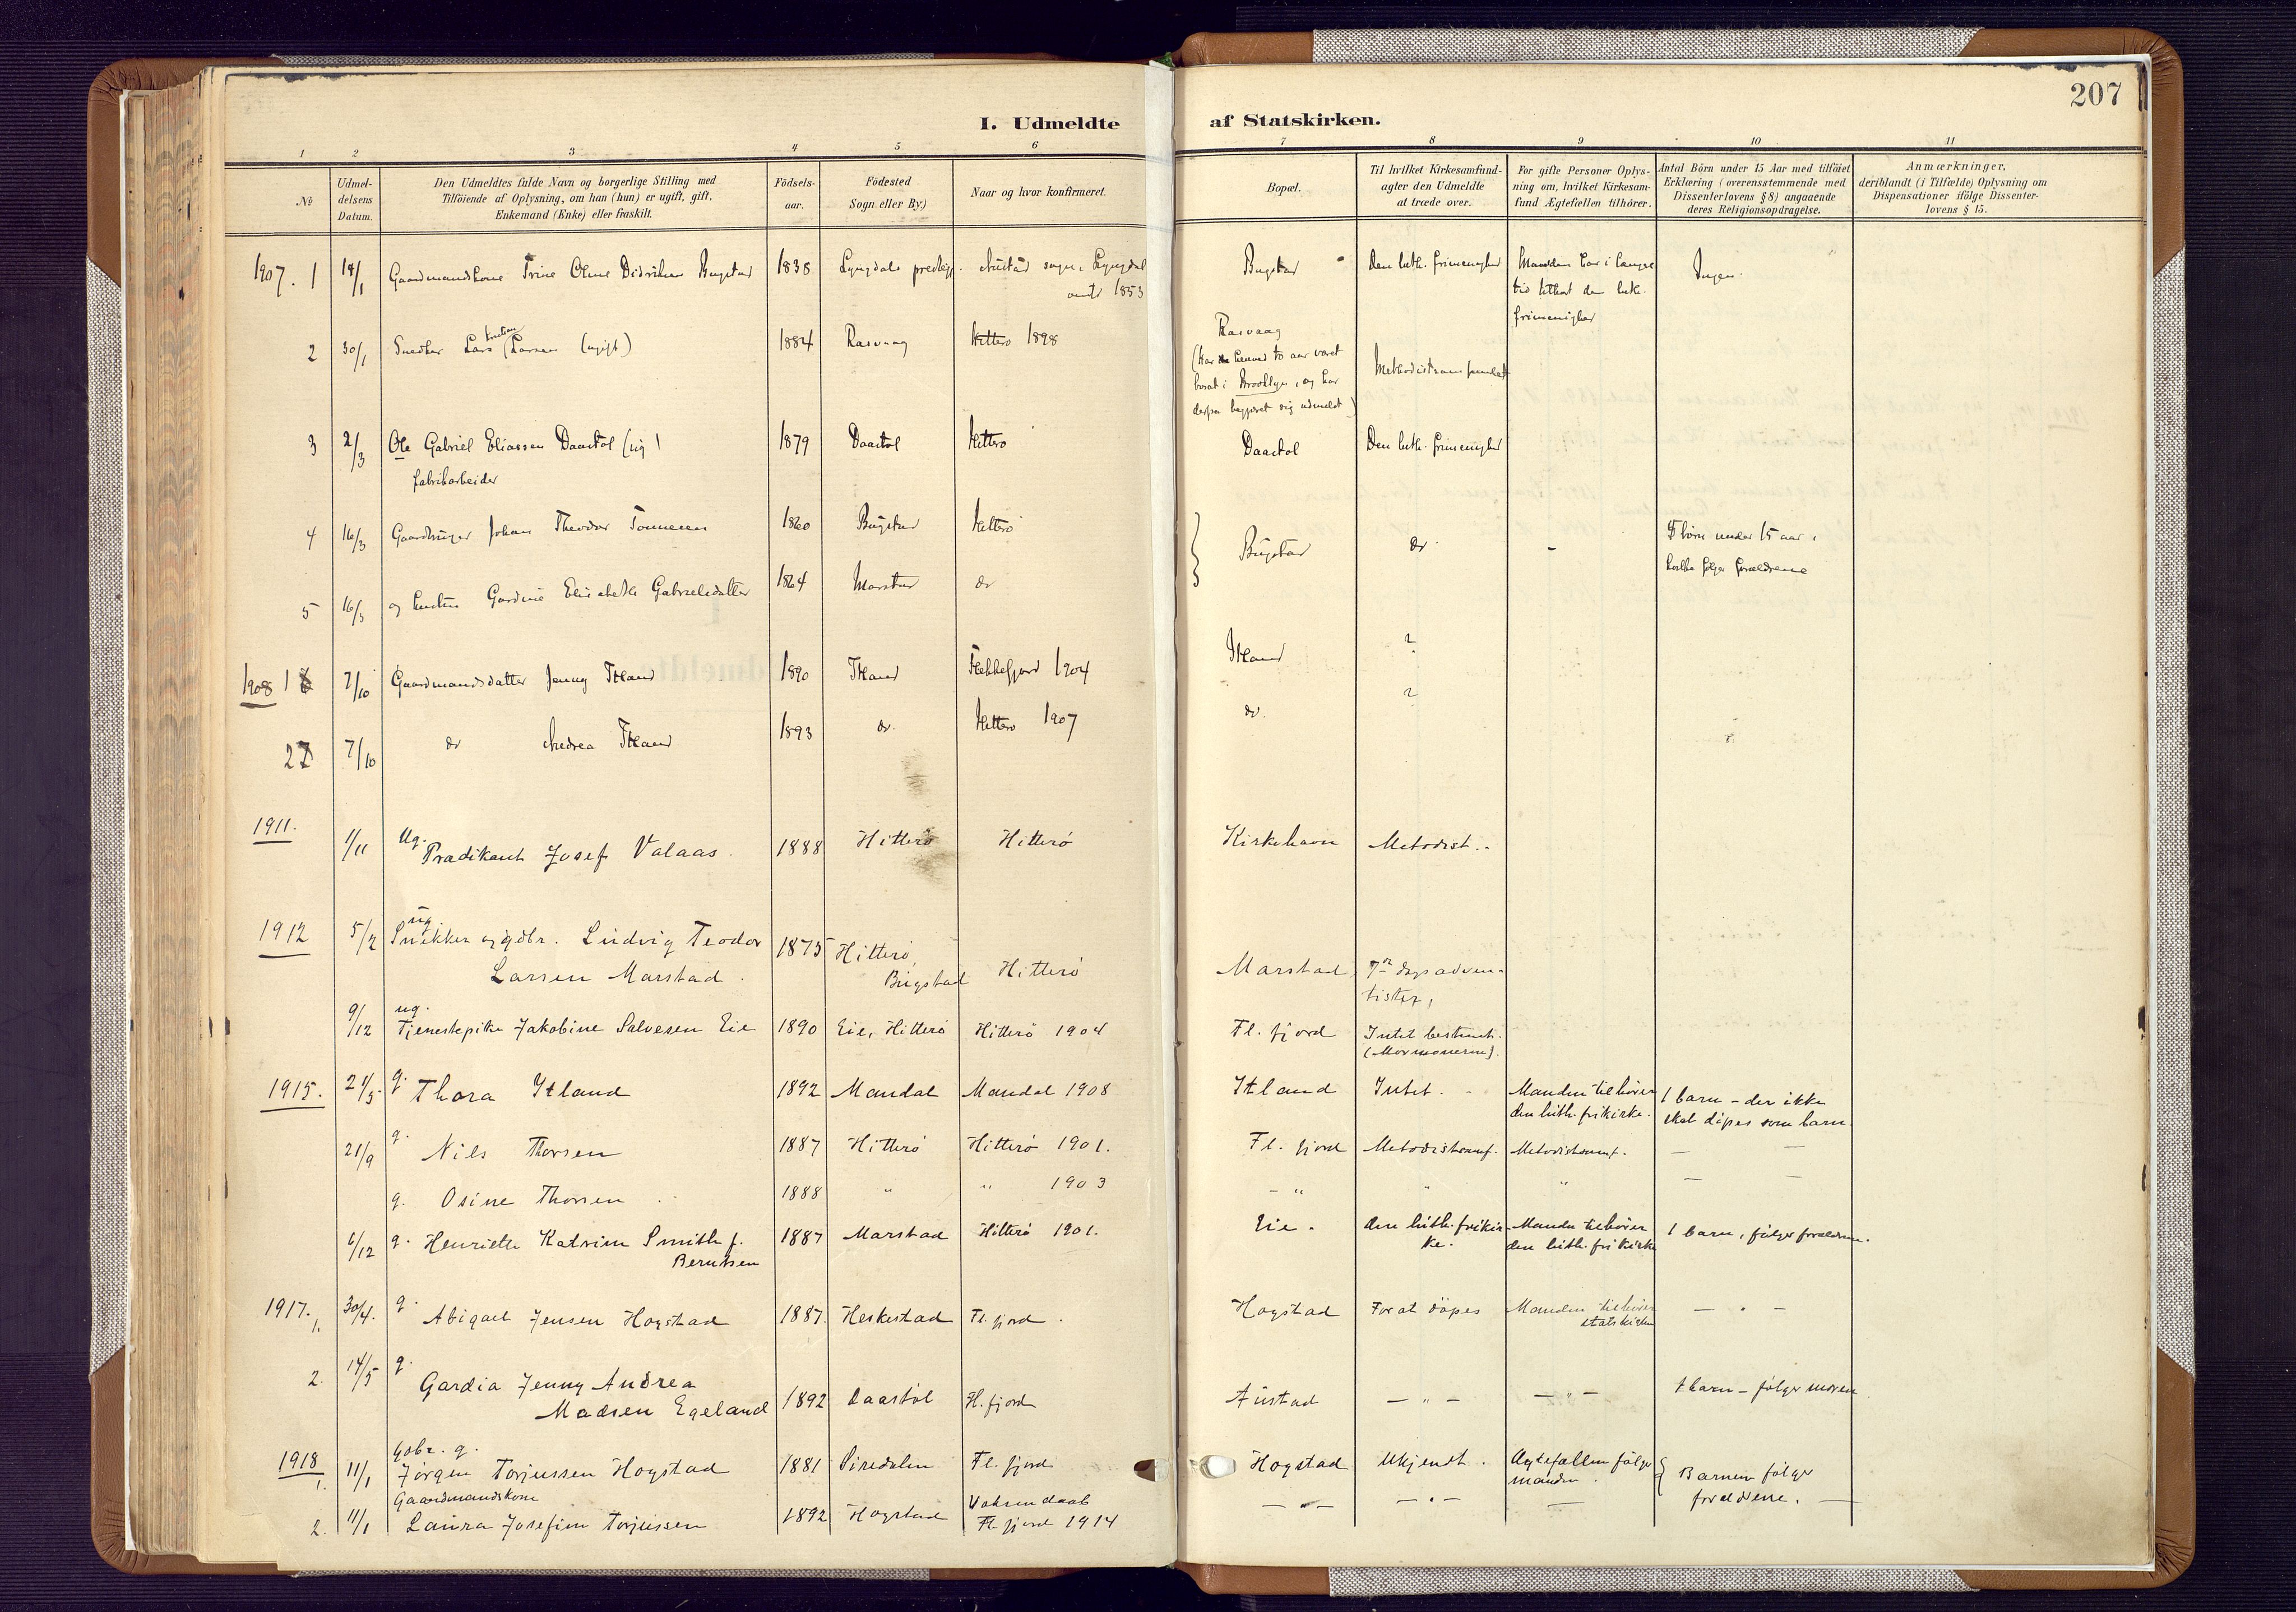 207
I. Udmeldte af Statskirken.
1 2 3 4 5 6 7 8 9 10 11
№
Udmel-
delsens
Datum.
Den Udmeldtes fulde Navn og borgerlige Stilling med
Tilföiende af Oplysning, om han (hun) er ugift, gift,
Enkemand (Enke) eller fraskilt.
Födsels-
aar.
Födested
Sogn eller By.)
Naar og hvor konfirmeret.
Bopæl.
Til hvilket Kirkesamfund-
agter den Udmeldte
at træde over.
For gifte Personer Oplys-
ning om, hvilket Kirkesam-
fund Ægtefællen tilhörer.
Antal Börn under 15 Aar med tilföiet
Erklæring (overensstemmende med
Dissenterlovens § 8) angaaende
deres Religionsopdragelse.
Anmærkninger,
deriblandt (i Tilfælde) Oplysning om
Dispensationer ifölge Dissenter-
lovens § 15.
1907. 1 18/1 Gaardmandskone Trine Oline Bugstad 1838 Lyngdals 1853
Bugstad Den luth. frimenighed Manden har i længre
tid tilhørt den luth.
frimenighed
Ingen.
2 30/1 Snedker Lars Larsen (ugift) 1884 Rasvaag Hitterø 1898
Rasvaag
(har to aar været
bosat i Brooklyn, og har
begjæret sig udmeldt)
Methodistsamfundet
3 2/3 Ole Gabriel Eliassen Daastøl (ug)
fabrikarbeider
1879 Daastøl Hitterø
Daastøl Den luth. frimenighed
4 16/3 Gaardbruger Johan Theodor Tønnesen 1860 Bugstad Hitterø
Bugstad do -
5 børn under 15 aar,
hvilke følger forældrene
5 16/3 og hustru Gardine Elisabeth Gabrielsdatter 1864 Marstad do
1908 1 7/10 Gaardmandsdatter Jenny Itland 1890 Itland Flekkefjord 1904
Itland ?
2 7/10 do Andrea Itland 1893 do. Hitterø 1907
do. ?
1911. 1/11 Ug. Prædikant Josef Valaas. 1888 Hitterø Hitterø
Kirkehavn Metodist.
1912 5/2 ug
Snekker og gdbr. Ludvig Teodor
Larsen Marstad.
1875 Hitterø,
Bugstad
Hitterø
Marstad 7de dags adven-
tister,
9/12 ug.
Tjenestepike Jakobine Salvesen Eie 1890 Eie, Hitterø Hitterø 1904
Fl. fjord Intet bestemt.
(Mormonerne).
1915. 21/5 g. Thora Itland 1892 Mandal Mandal 1908
Itland Intet. - Manden tilhører
den luth. frikirke.
1 barn - der ikke
skal døpes som barn.
21/9 g. Nils Thorsen 1887 Hitterø Hitterø 1901.
Fl. fjord Metodistsamf. Metodistsamf. — —
g. Osine Thorsen 1888 " " 1903
- " " " — —
6/12 g. Henriette Katrine Smith f.
Berntsen
1887 Marstad Hitterø 1901.
Eie. den luth. frikir-
ke.
Manden tilhører
den luth. frikirke
1 barn, følger forældrene.
1917. 1. 30/4. g. Abigael Jensen Hogstad 1887. Heskestad Fl. fjord.
Hogstad For at døpes Manden tilhører
statskirken
— " —
2. 14/5 g.
Gardia Jenny Andrea
Madsen Egeland
1892 Daastøl Fl. fjord
Austad — " — — " — 1 barn - følger moren
1918 1. 11/1 Gdbr. g.
Jørgen Torjussen Hogstad 1881 Siredalen Fl. fjord
Hogstad Ukjendt. Ægtefællen følger
manden.
Barnene følger
forældrene.
2. 11/1 Gaardmandskone
Laura Josefine Torjussen 1892 Hogstad Voksendaab
Fl. fjord 1914
— " — — " — — —